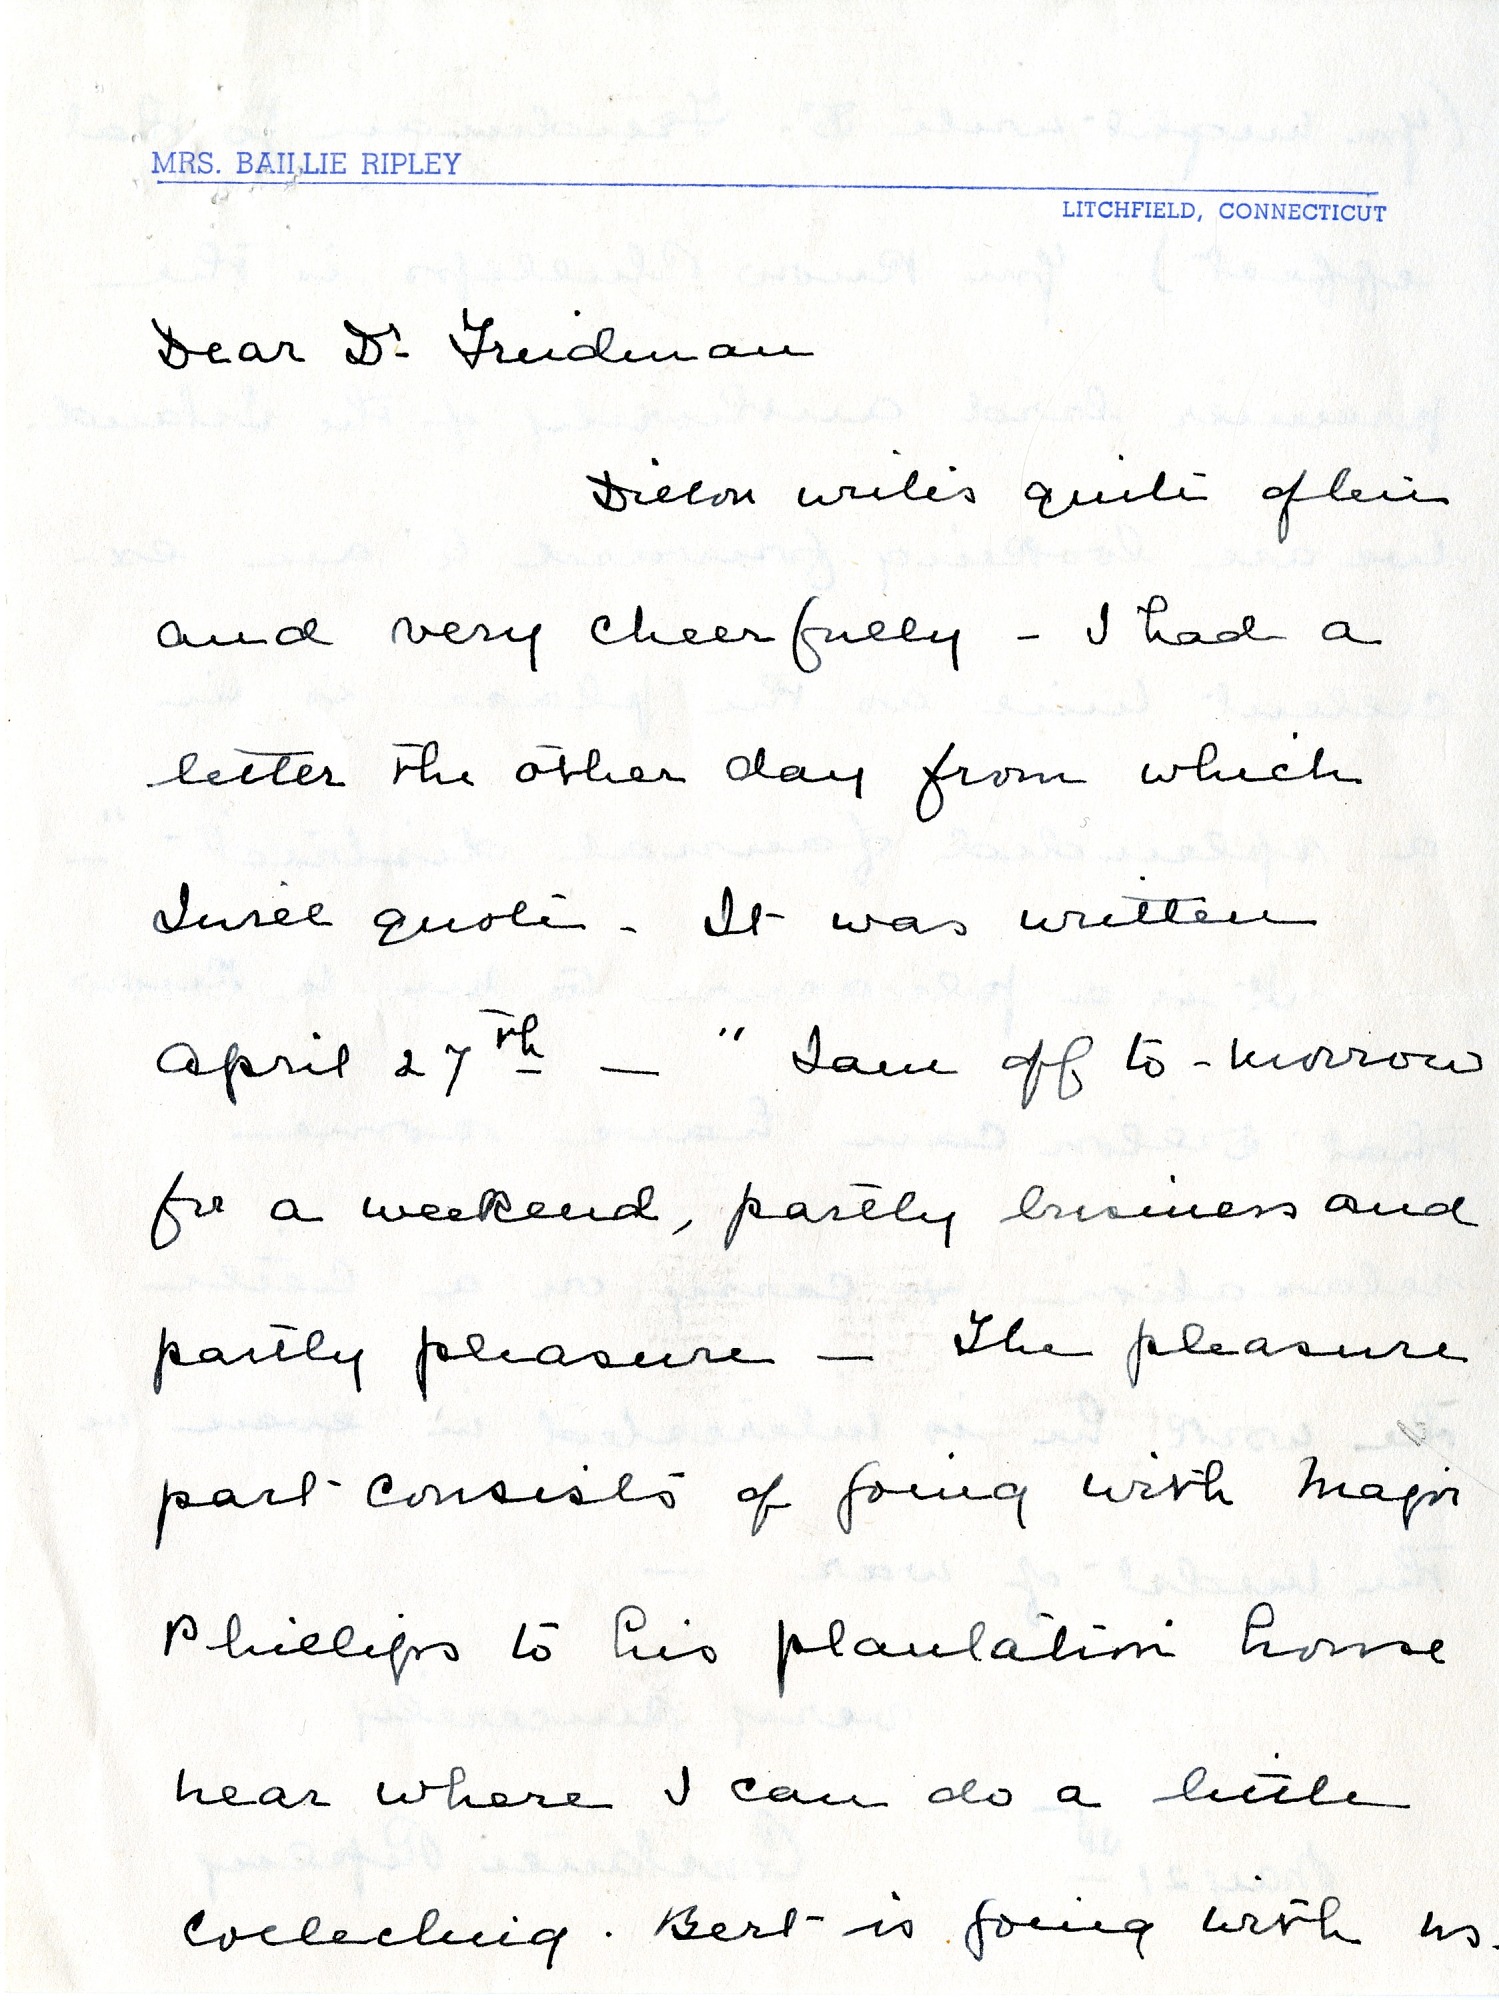 MRS. BAILLIE RIPLEY
LITCHFIELD, CONNECTICUT
Dear Dr. Freidman
Dillon writes quite often
and very cheerfully - I had a
letter the other day from which
I will quote - It was written
April 27th — " I am off to-morrow
for a weekend, partly business and
partly pleasure — The pleasure
part consists of going with Major
Phillips to his plantation house
near where I can do a little
collecting. Bert is going with us.